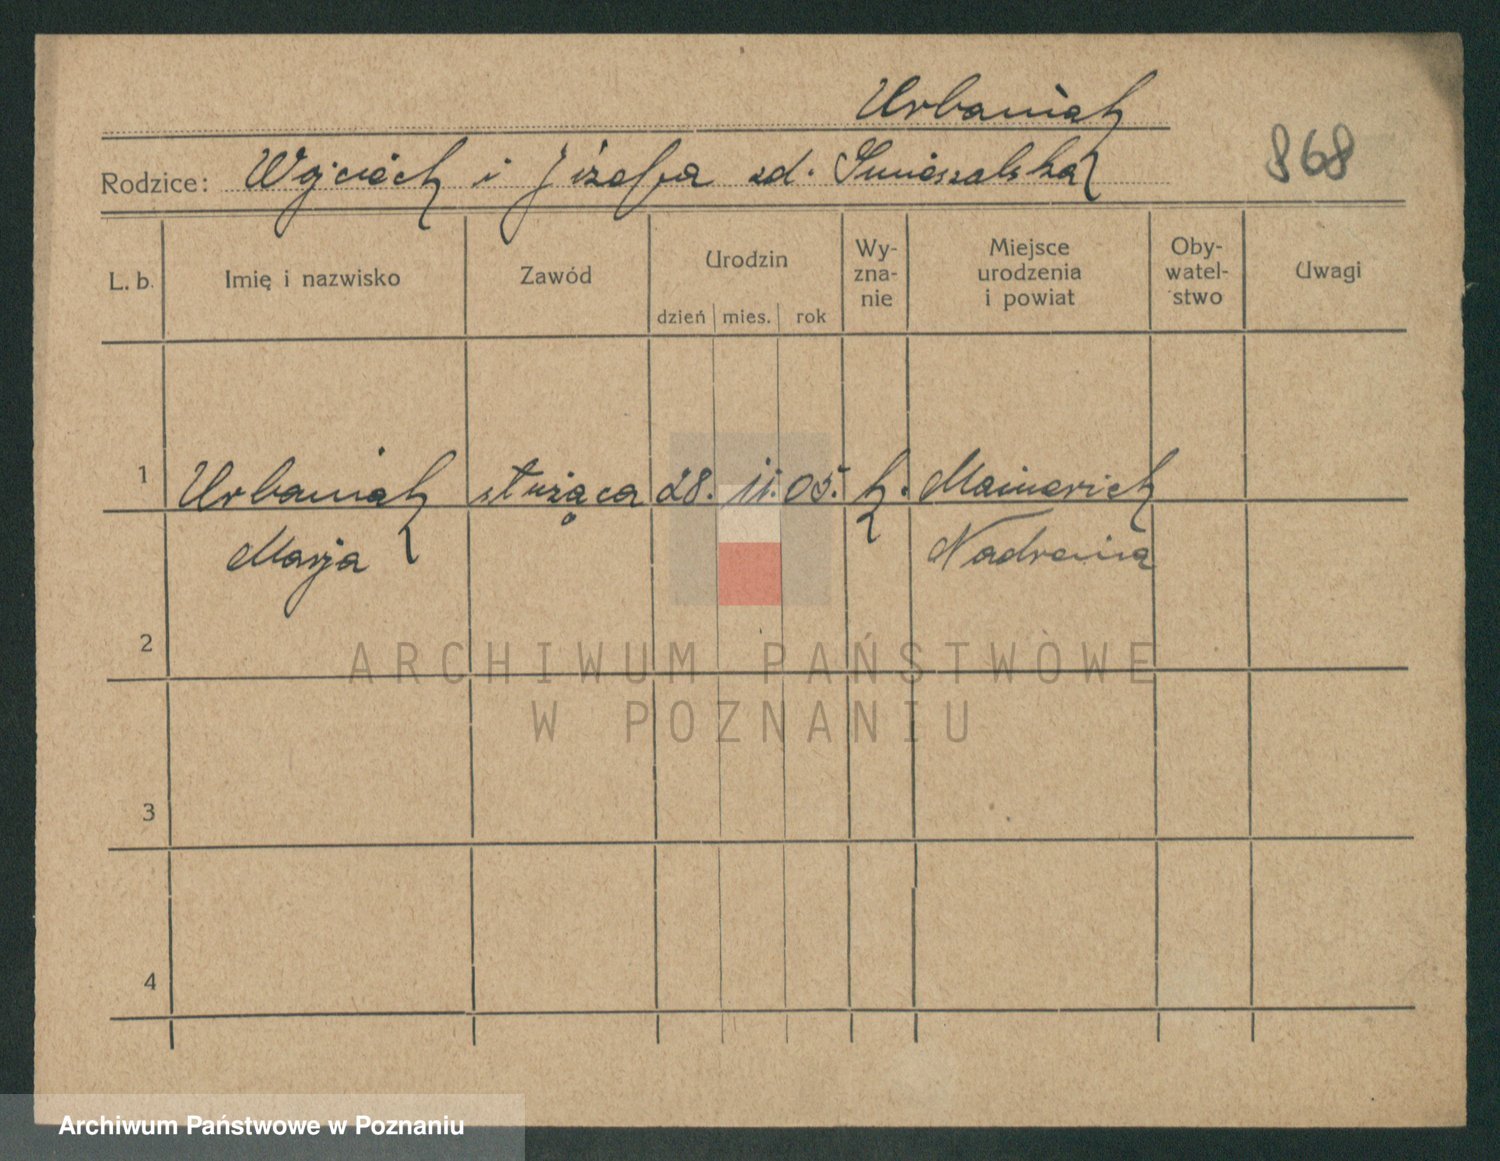 Urbaniak
868
Rodzice: Wojciech i Józefa zd.
L. b. Imię i nazwisko Zawód Urodzin Wy-zna-nie Miejsce urodzenia i powiat Oby-watel-stwo Uwagi
dzień mies. rok
1 Urbaniak służąca 28. 11. 05. k. Meiderich
Marja Nadrenia
2
ARCHIWUM PAŃSTWOWE
W POZNANIU
3
4
Archiwum Państwowe w Poznaniu